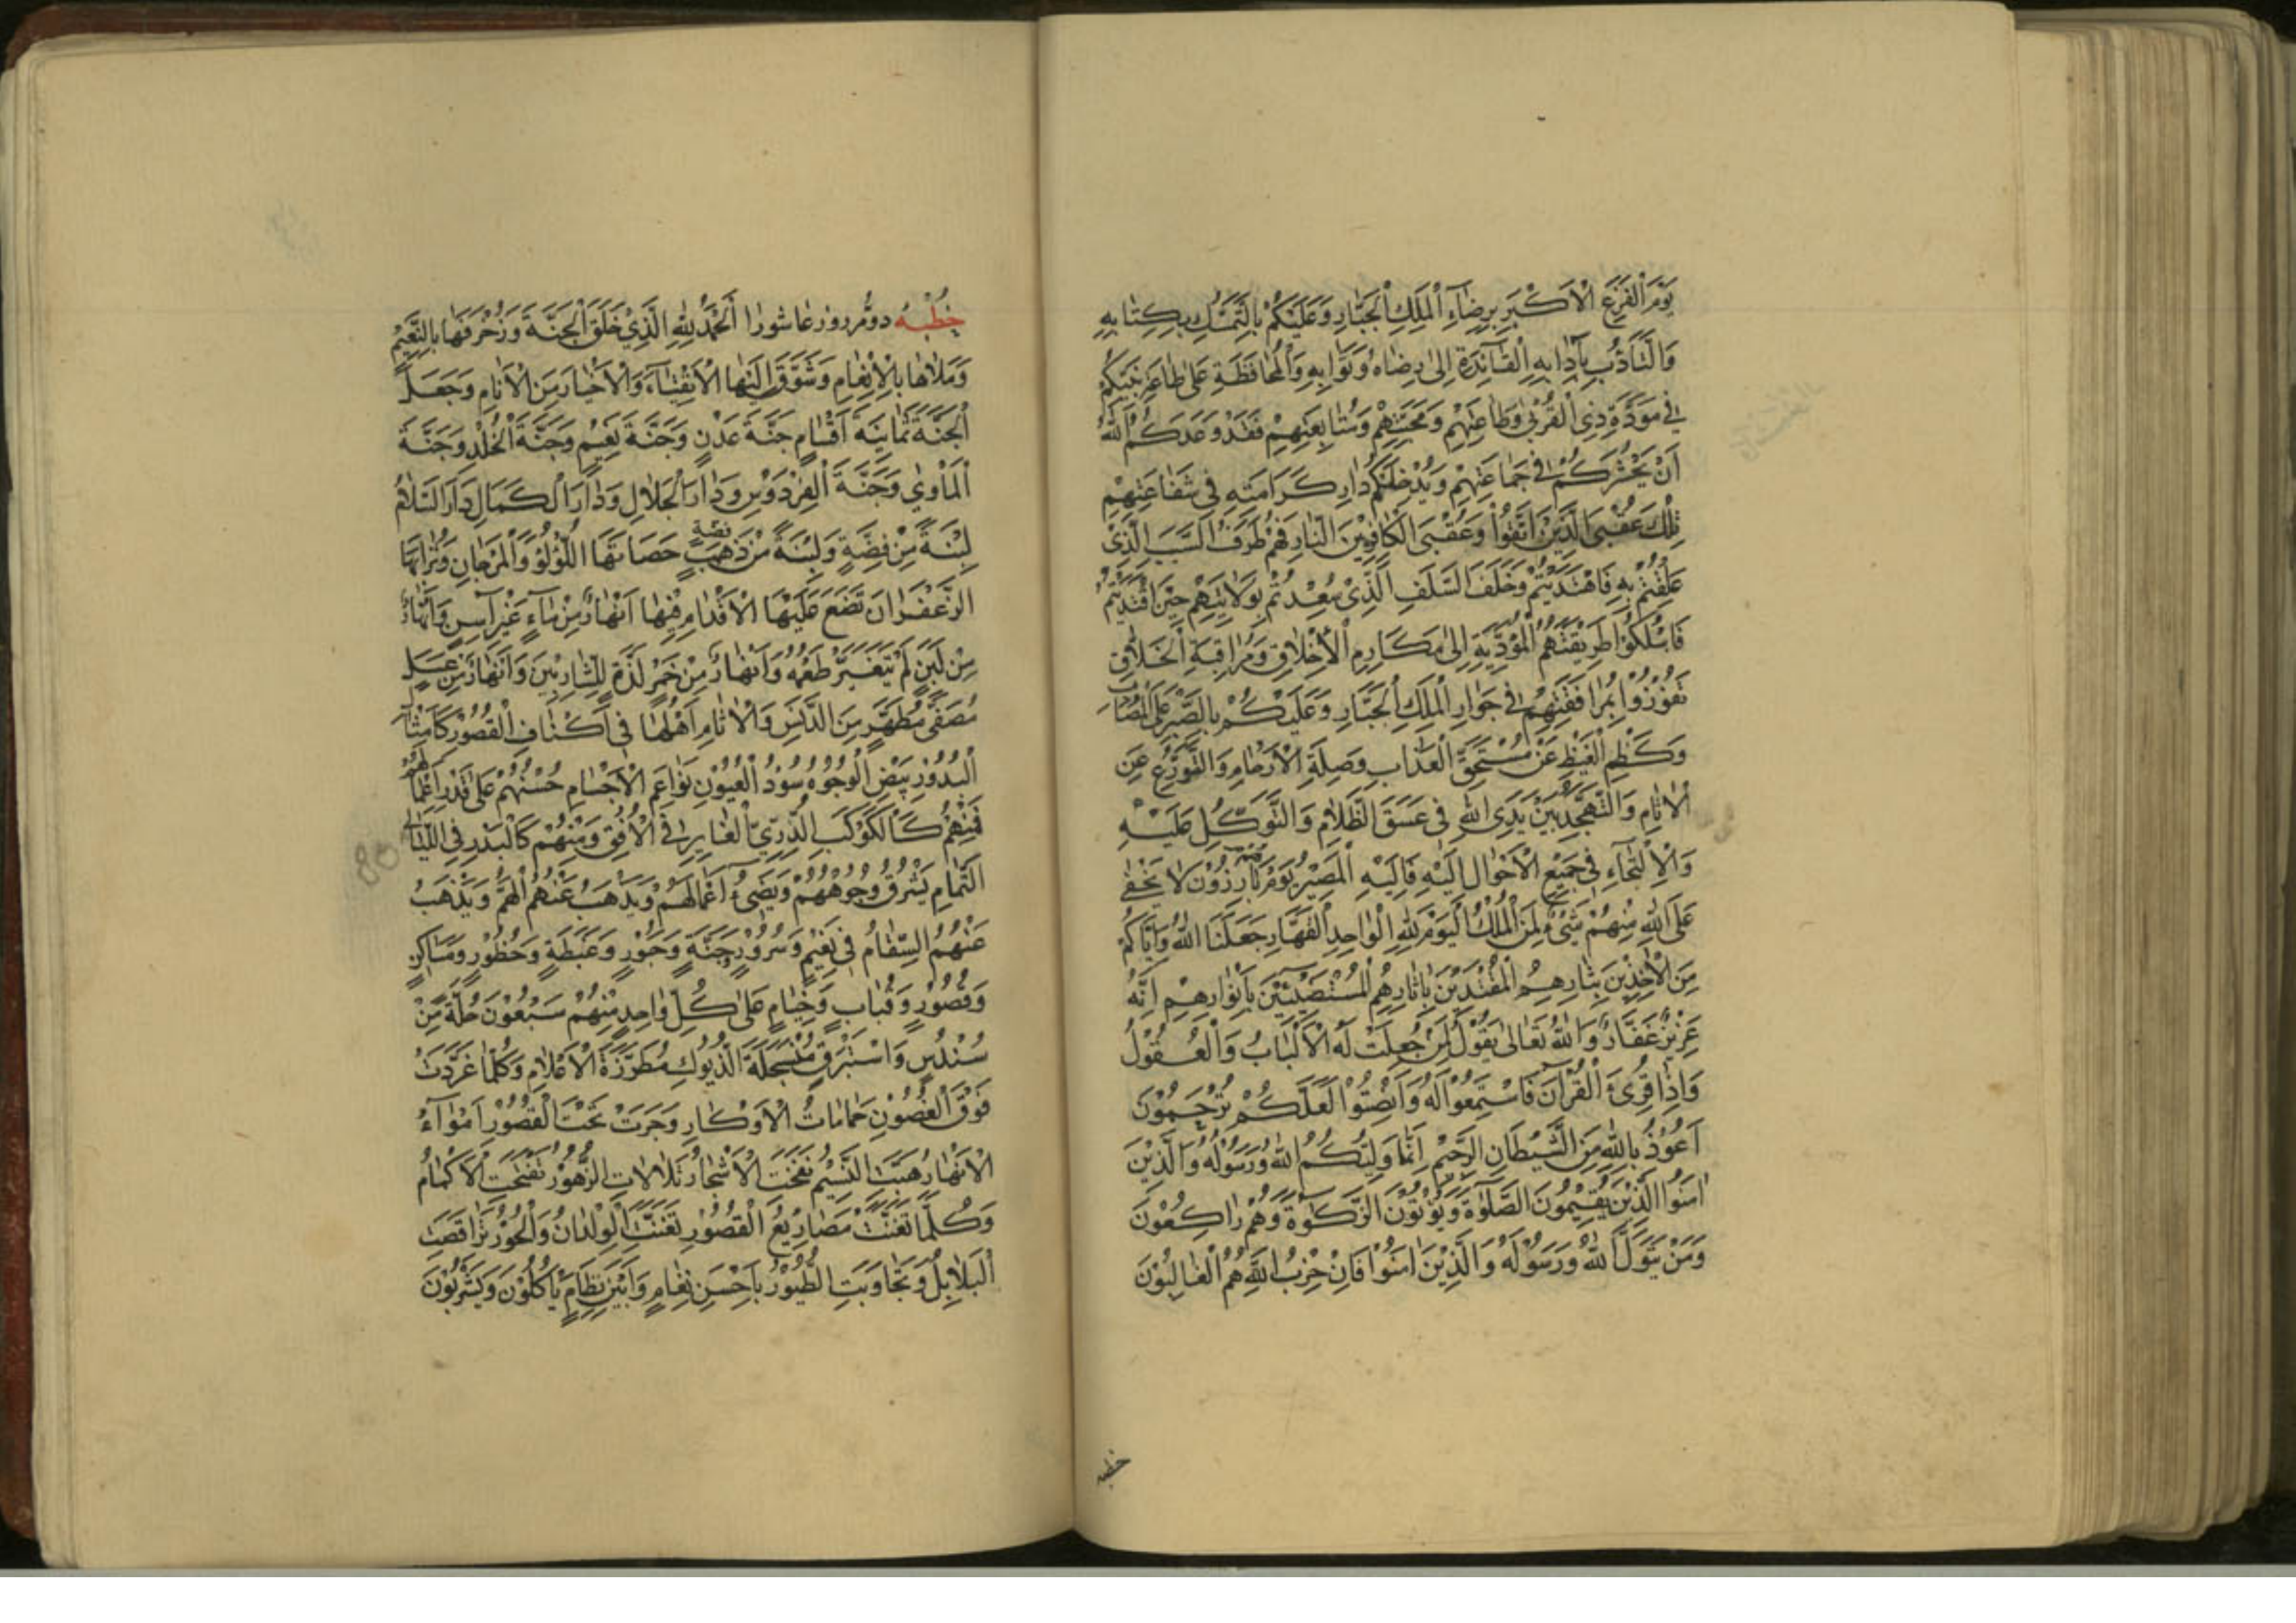 يَوْمَ الْفَزَعِ الْاَكْبَرِ بِرِضَاءِ الْمَلِكِ الْجَبَّارِ وَعَلَيْكُمْ بِالتَّمَسُّكِ بِكِتَابِهِ
وَالتَّأَدُّبِ بِآدَابِهِ الْقَآئِدَةِ اِلٰى رِضَاهُ وَثَوَابِهِ وَالْمُحَافَظَةِ عَلٰى طَاعَةِ نَبِيِّكُمْ
فِي مَوَدَّةِ ذِي الْقُرْبٰى وَطَاعَتِهِمْ وَمَحَبَّتِهِمْ وَمُتَابِعَتِهِمْ فَقَدْ وَعَدَكُمُ اللّٰهُ
اَنْ يَحْشُرَكُمْ فِي جَمَاعَتِهِمْ وَيُدْخِلَكُمْ دَارَ كَرَامَتِهِ فِي شَفَاعَتِهِمْ
تِلْكَ عُقْبَى الَّذِيْنَ اتَّقَوْا وَعُقْبَى الْكَافِرِيْنَ النَّارَ فَهُمْ طَرَفُ السَّبَبِ الَّذِيْ
عَلِقْتُمْ بِهِ فَاهْتَدَيْتُمْ وَخَلَفُ السَّلَفِ الَّذِيْ سُعِدْتُمْ بِوَلَايَتِهِمْ حِيْنَ اقْتَدَيْتُمْ
فَاسْلُكُوْا طَرِيْقَتَهُمُ الْمُؤَدِّيَةِ اِلٰى مَكَارِمِ الْاَخْلَاقِ وَمُرَاقَبَةِ الْخَلَّاقِ
تَفُوْزُوْا بِمُرَافَقَتِهِمْ فِي جَوَارِ الْمَلِكِ الْجَبَّارِ وَعَلَيْكُمْ بِالصَّبْرِ عَلَى الْمُصَابِ
وَكَظْمِ الْغَيْظِ عَنْ مُسْتَحِقِّ الْعَذَابِ وَصِلَةِ الْاَرْحَامِ وَالتَّوَرُّعِ عَنِ
الْاٰثَامِ وَالتَّهَجُّدِ بَيْنَ يَدَيِ اللّٰهِ فِي غَسَقِ الظَّلَامِ وَالتَّوَكُّلِ عَلَيْهِ
وَالْاِلْتِجَآءِ فِي جَمِيْعِ الْاَحْوَالِ اِلَيْهِ فَاِلَيْهِ الْمَصِيْرُ يَوْمَ هُمْ بَارِزُوْنَ لَا يَخْفٰى
عَلَى اللّٰهِ مِنْهُمْ شَيْءٌ لِمَنِ الْمُلْكُ الْيَوْمَ لِلّٰهِ الْوَاحِدِ الْقَهَّارِ جَعَلَنَا اللّٰهُ وَاِيَّاكُمْ
مِنَ الْاٰخِذِيْنَ بِثَارِهِمُ الْمُقْتَدِيْنَ بِاٰثَارِهِمُ الْمُسْتَضِيْئِيْنَ بِاَنْوَارِهِمْ اِنَّهُ
عَزِيْزٌ غَفَّارٌ وَاللّٰهُ تَعَالٰى يَقُوْلُ لِمَنْ جُعِلَتْ لَهُ الْاَلْبَابُ وَالْعُقُوْلُ
وَاِذَا قُرِئَ الْقُرْآنُ فَاسْتَمِعُوْا لَهُ وَاَنْصِتُوْا لَعَلَّكُمْ تُرْحَمُوْنَ
اَعُوْذُ بِاللّٰهِ مِنَ الشَّيْطَانِ الرَّجِيْمِ اِنَّمَا وَلِيُّكُمُ اللّٰهُ وَرَسُوْلُهُ وَالَّذِيْنَ
اٰمَنُوا الَّذِيْنَ يُقِيْمُوْنَ الصَّلٰوةَ وَيُؤْتُوْنَ الزَّكٰوةَ وَهُمْ رَاكِعُوْنَ
وَمَنْ يَتَوَلَّ اللّٰهَ وَرَسُوْلَهُ وَالَّذِيْنَ اٰمَنُوْا فَاِنَّ حِزْبَ اللّٰهِ هُمُ الْغَالِبُوْنَ
خطبه
خُطْبَهُ دوّم روز عاشورا اَلْحَمْدُ لِلّٰهِ الَّذِيْ خَلَقَ الْجَنَّةَ وَزَخْرَفَهَا بِالنَّعِيْمِ
وَمَلَاَهَا بِالْاِنْعَامِ وَشَوَّقَ اِلَيْهَا الْاَتْقِيَآءَ وَالْاَخْيَارَ مِنَ الْاَنَامِ وَجَعَلَ
الْجَنَّةَ ثَمَانِيَةَ اَقْسَامٍ جَنَّةَ عَدْنٍ وَجَنَّةَ نَعِيْمٍ وَجَنَّةَ الْخُلْدِ وَجَنَّةَ
الْمَأْوٰي وَجَنَّةَ الْفِرْدَوْسِ وَدَارَ الْجَلَالِ وَدَارَ الْكَمَالِ دَارَ السَّلَامِ
لِبْنَةً مِنْ فِضَّةٍ وَلِبْنَةً مِنْ ذَهَبٍ حَصَاتُهَا اللُّؤْلُؤُ وَالْمَرْجَانِ وَتُرَابُهَا
الزَّعْفَرَانَ تَضَعُ عَلَيْهَا الْاَقْدَامِ فِيْهَا اَنْهَارٌ مِنْ مَآءٍ غَيْرِ آسِنٍ وَاَنْهَارٌ
مِنْ لَبَنٍ لَمْ يَتَغَيَّرْ طَعْمُهُ وَاَنْهَارٌ مِنْ خَمْرٍ لَذَّةٍ لِلشَّارِبِيْنَ وَاَنْهَارٌ مِنْ عَسَلٍ
مُصَفًّى مُطَهَّرٍ مِنَ الدَّنَسِ وَالْاٰثَامِ اَهْلُهَا فِي اَكْنَافِ الْقُصُوْرِ كَاَمْثَالِ
الْبُدُوْرِ بِيْضُ الْوُجُوْهِ سُوْدُ الْعُيُوْنِ نَوَاعِمُ الْاَجْسَامِ حُسْنُهُمْ عَلٰى قَدْرِ اَعْمَالِهِمْ
فَمِنْهُمْ كَالْكَوْكَبِ الدُّرِّيِّ الْغَابِرِ فِي الْاُفُقِ وَمِنْهُمْ كَالْبَدْرِ فِي اللَّيَالِي
التَّمَامِ يَشْرُقُ وُجُوْهُهُمْ وَيُضِيْءُ اَعْمَالَهُمْ وَيَذْهَبُ عَنْهُمُ الْهَمُّ وَيَذْهَبُ
عَنْهُمُ السِّقَامُ فِي نَعِيْمٍ وَسُرُوْرٍ جَنَّةٍ وَحُبُوْرٍ وَغَبْطَةٍ وَحُظُوْرٍ وَمَسَاكِنٍ
وَقُصُوْرٍ وَقُبَابٍ وَخِيَامٍ عَلٰى كُلِّ وَاحِدٍ مِنْهُمْ سَبْعُوْنَ حُلَّةً مِنْ
سُنْدُسٍ وَاسْتَبْرَقٍ الذُّيُوْلِ مُطَرَّزَةُ الْاَعْلَامِ وَكُلَّمَا غَرَّدَتْ
فَوْقَ الْغُصُوْنِ حَمَامَاتُ الْاَوْكَارِ وَجَرَتْ تَحْتَ الْقُصُوْرِ اَمْوَآءُ
الْاَنْهَارِ هَبَّتِ النَّسِيْمُ نَفَخَتِ الْاَشْجَارُ تَلَأْلَأَتِ الزُّهُوْرُ نَفَخَتِ الْاَكْمَامُ
وَكُلَّمَا تَغَنَّتْ مَصَارِيْعُ الْقُصُوْرِ تَغَنَّتِ الْوِلْدَانُ وَالْحُوْرُ تَرَاقَصَتِ
الْبَلَابِلُ وَتَجَاوَبَتِ الطُّيُوْرُ بِاَحْسَنِ نِغَامٍ وَاَبْيَنِ نِظَامٍ يَأْكُلُوْنَ وَيَشْرَبُوْنَ